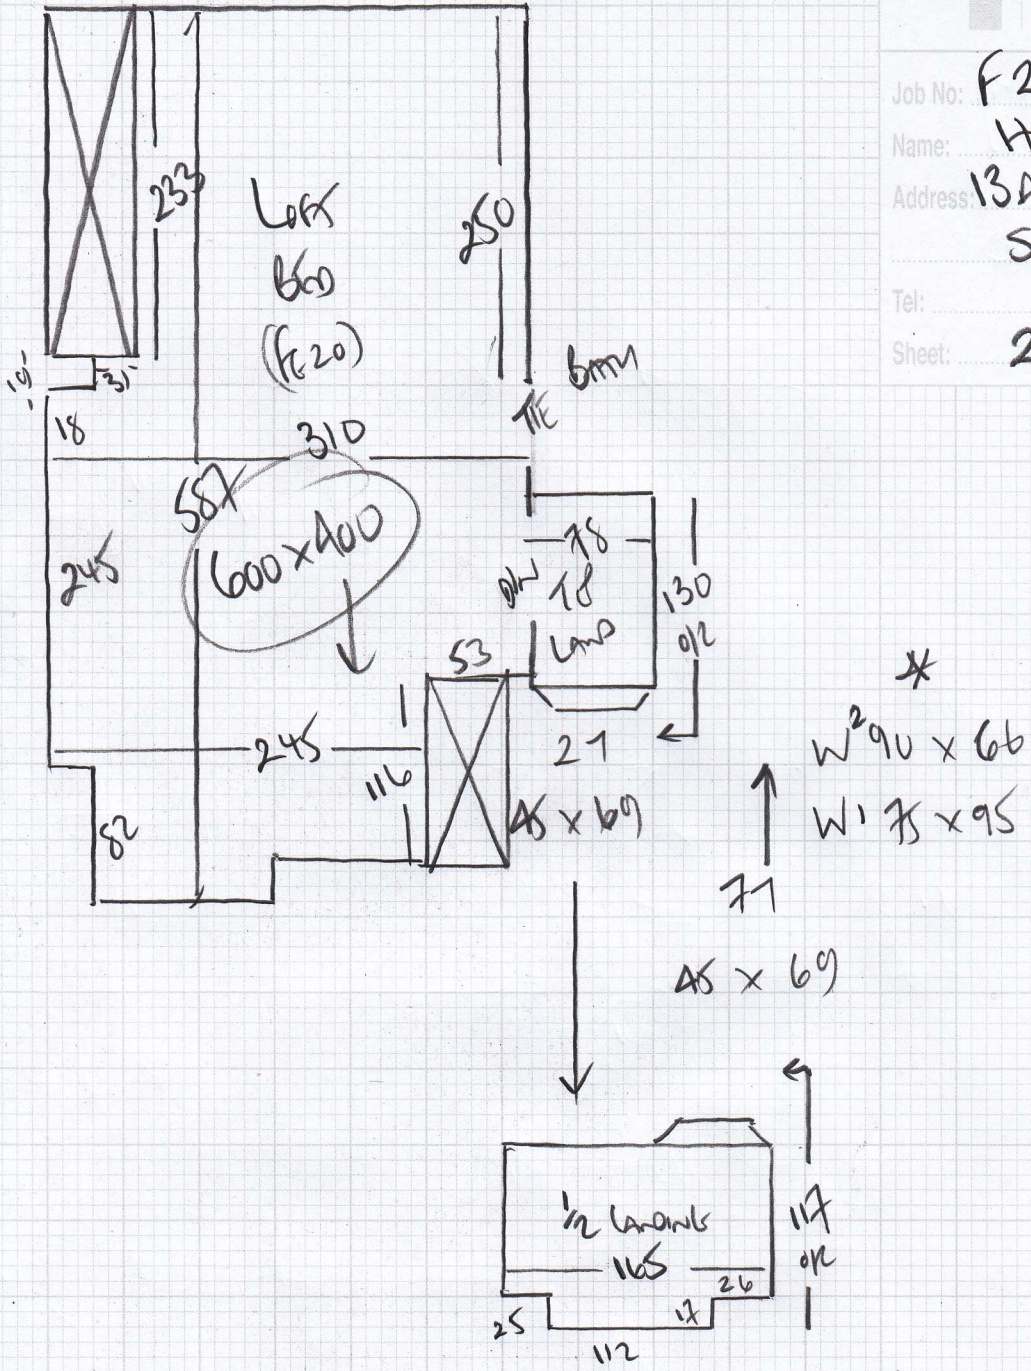 Job No: F2
Name: H
Address: 13A
S
Tel:
Sheet: 2
233
LOFT
BED
(FE20)
250
19
31
18
BATH
T/E
310
587
600 x 400
245
78
D/W
T8
LAND
130
O/R
53
245
116
21
45 x 69
82
*
W² 90 x 66
W1 75 x 95
71
45 x 69
1/2 LANDING
165
26
117
O/R
25
17
112